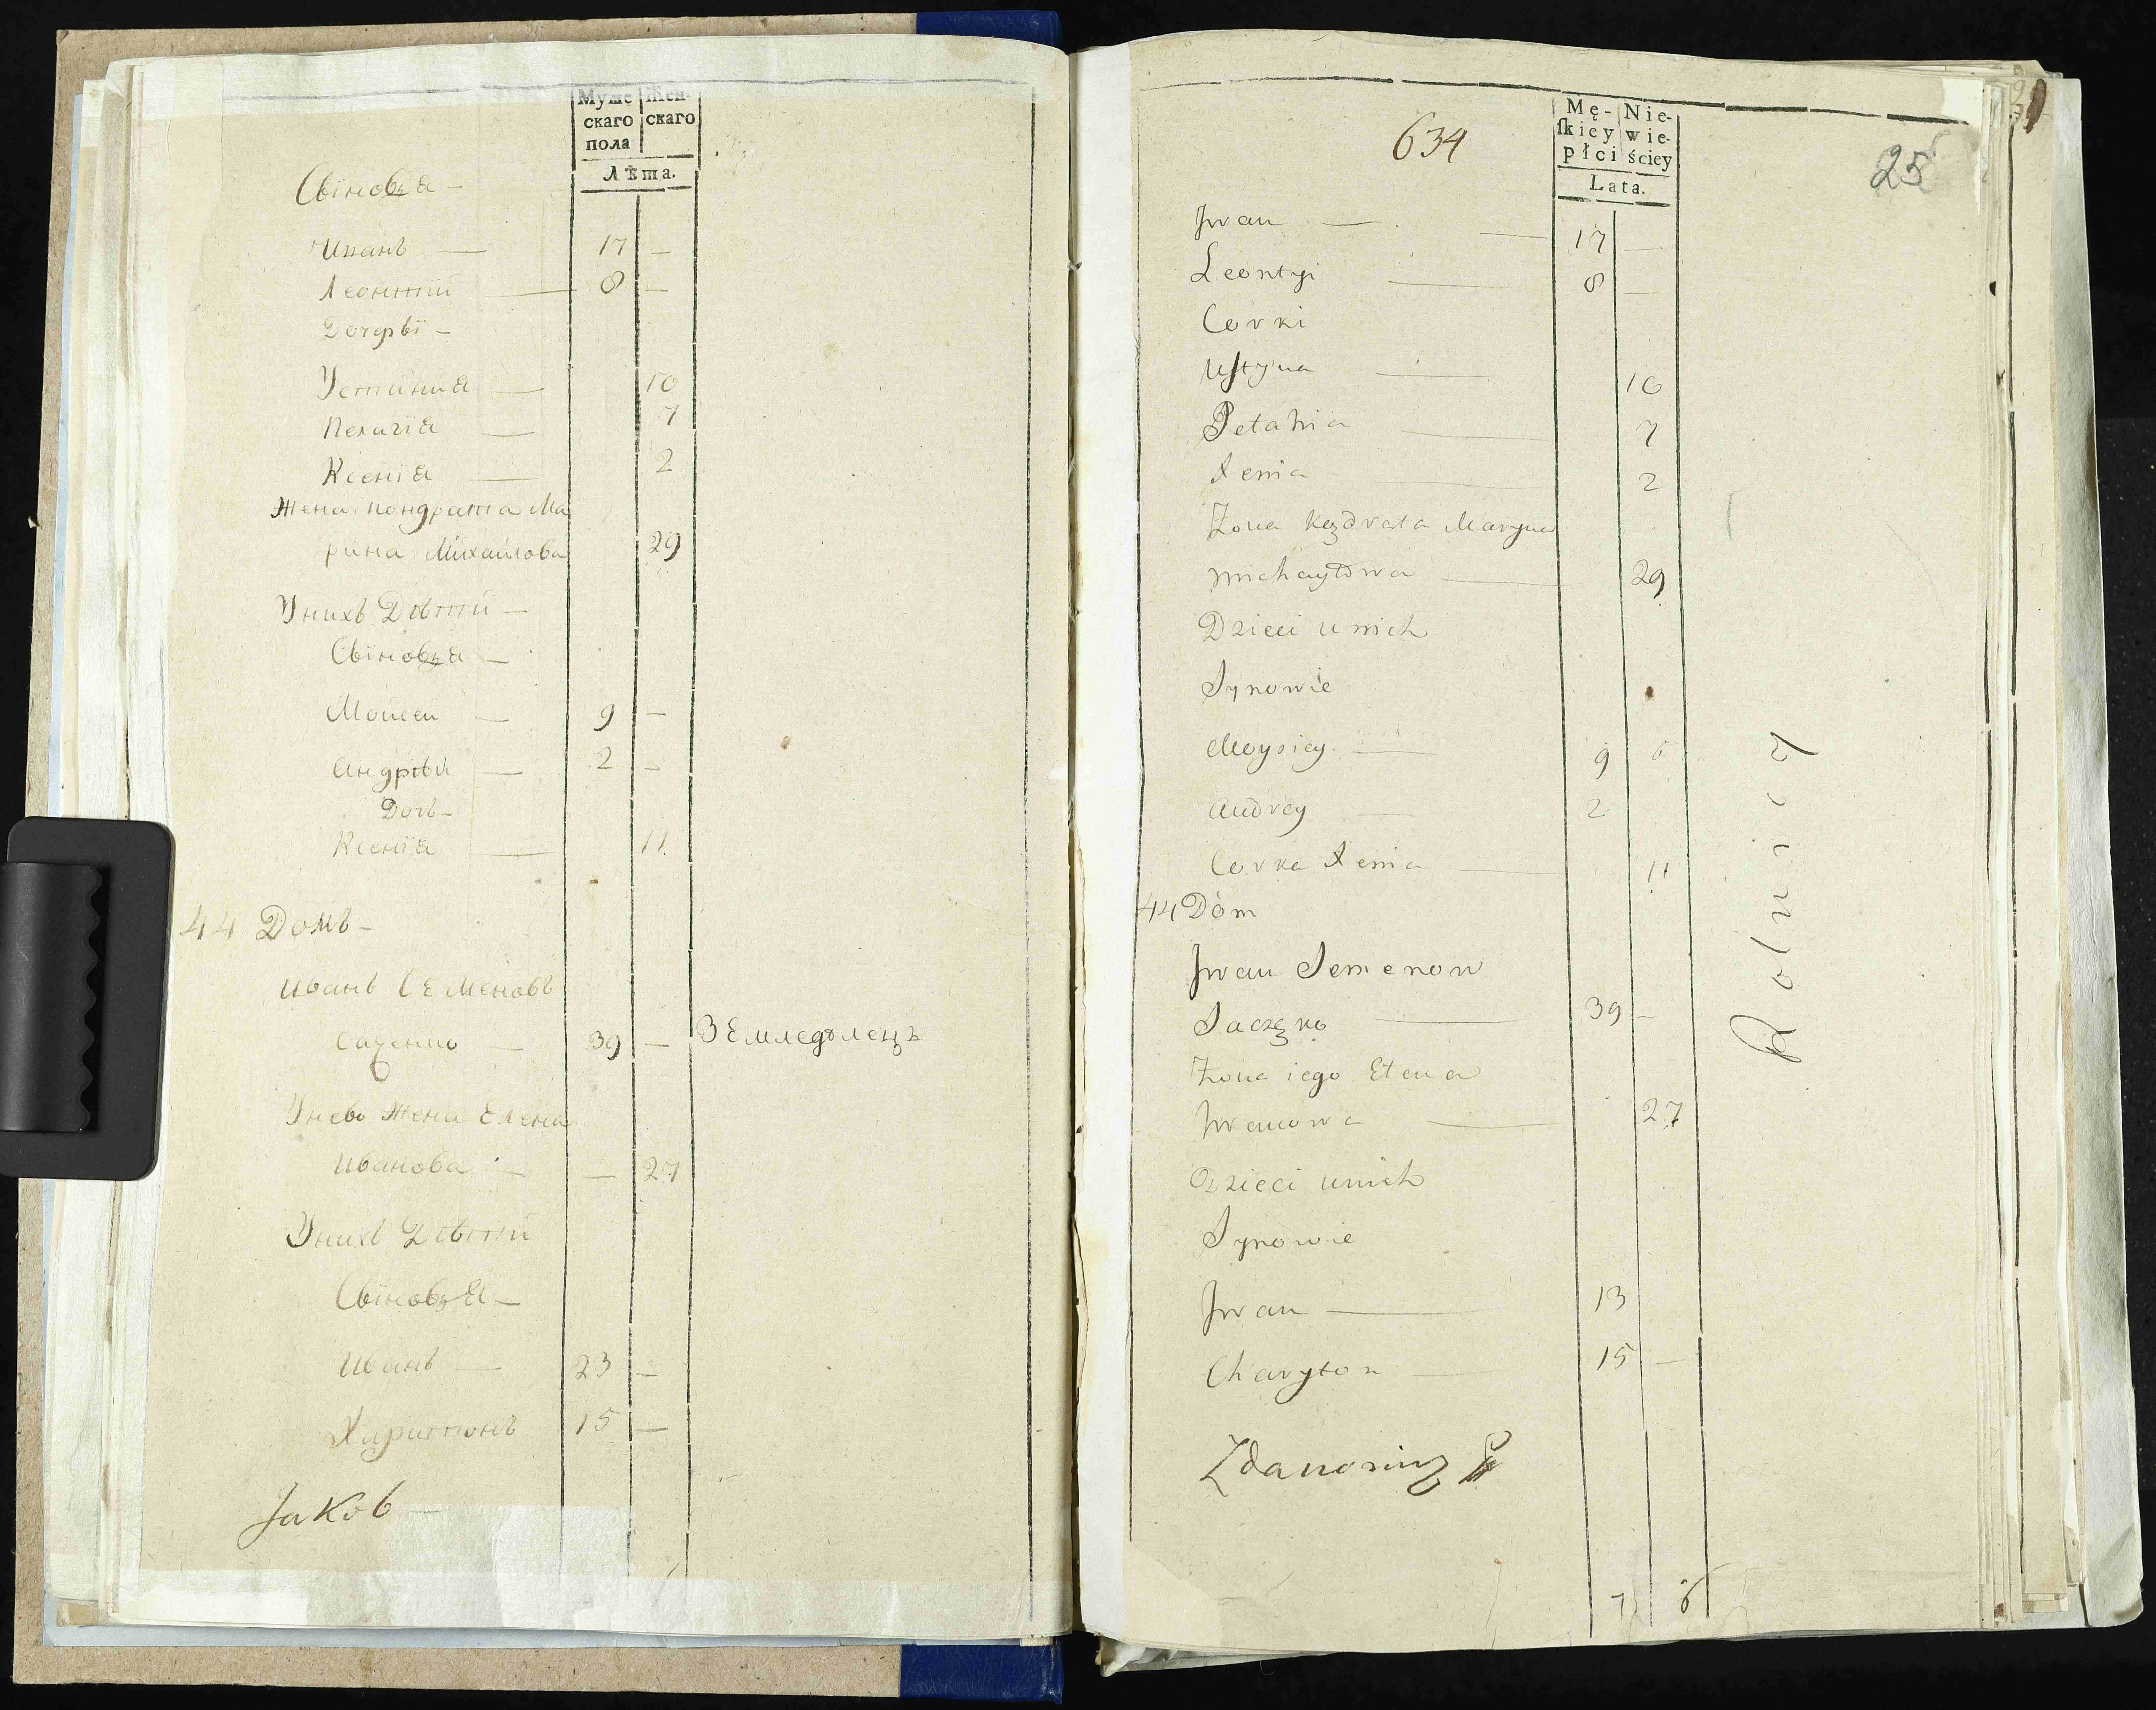 Муже Жен-
скаго скаго
пола
Лѣта.
Сыновья —
Иванъ — 17 —
Леонтий — 8 —
Дочеры —
Устиния — 10
Пелагія — 7
Ксенія — 2
Жена Кондрата Ма
рина Михайлова 29
Унихъ Дѣти —
Сыновья —
Моисей — 9 —
Андрѣй — 2 —
Дочь —
Ксенія — 11
44 Домъ —
Иванъ Семеновъ
Саченко — 39 — Земледѣлецъ
Унево Жена Елена
Иванова — — 27
Унихъ Дѣти
Сыновья —
Иванъ — 23 —
Харитонъ 15 —
Jаковъ —
634
Mę- Nie-
ſkiey wie-
płci ściey
Lata.
25
Jwan — 17 —
Leontyi — 8 —
Corki
Uſtyna — 10
Pelahia — 7
Xenia — 2
Żona Kądrata Maryna
Michayłowa — 29
Dzieci u nich
Synowie
Moysiey — 9
Andrey — 2
Corka Xenia — 11
44 Dóm
Jwan Semenow
Saczęko — 39 —
Żona iego Elena
Jwanowa — 27
Dzieci u nich
Synowie
Jwan — 13
Charyton — 15 —
Rolnicy